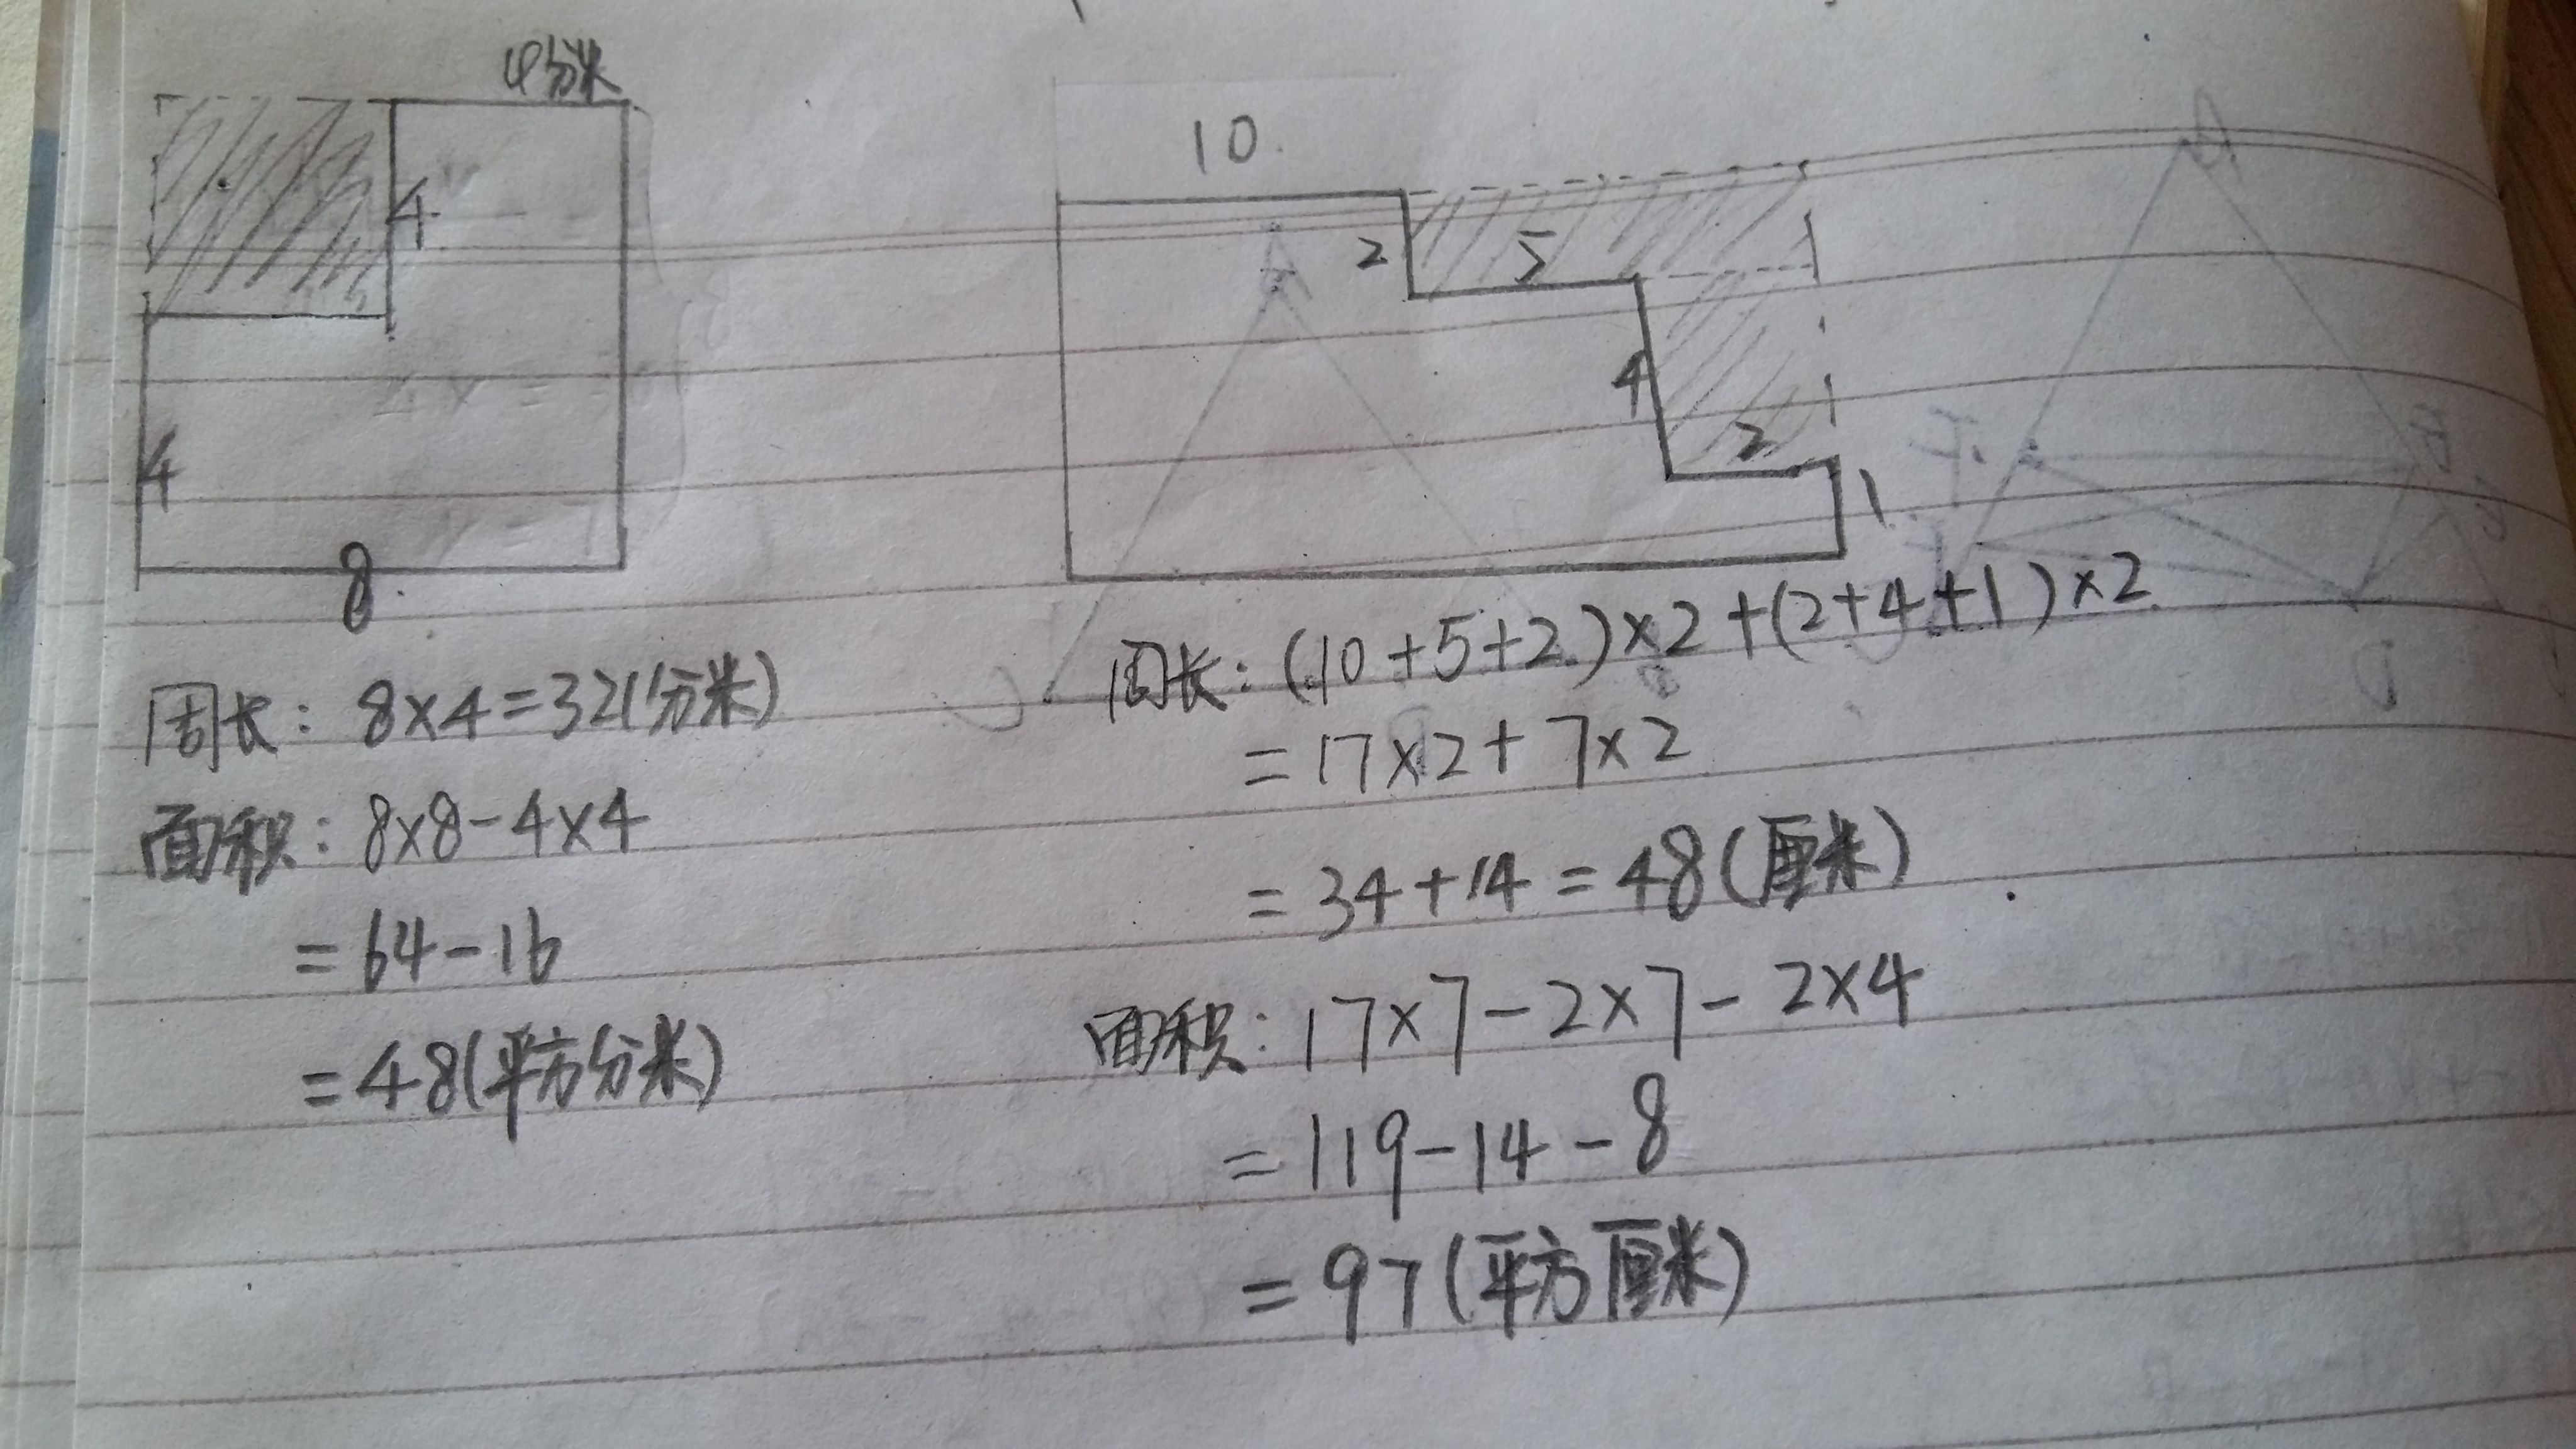 4分米
4
4
8.
周长: 8×4=32(分米)
面积: 8×8-4×4
=64-16
=48(平方分米)
10.
2
5
4
2
1.
周长: (10+5+2)×2+(2+4+1)×2
=17×2+7×2
=34+14=48(厘米)
面积: 17×7-2×7-2×4
=119-14-8
=97(平方厘米)